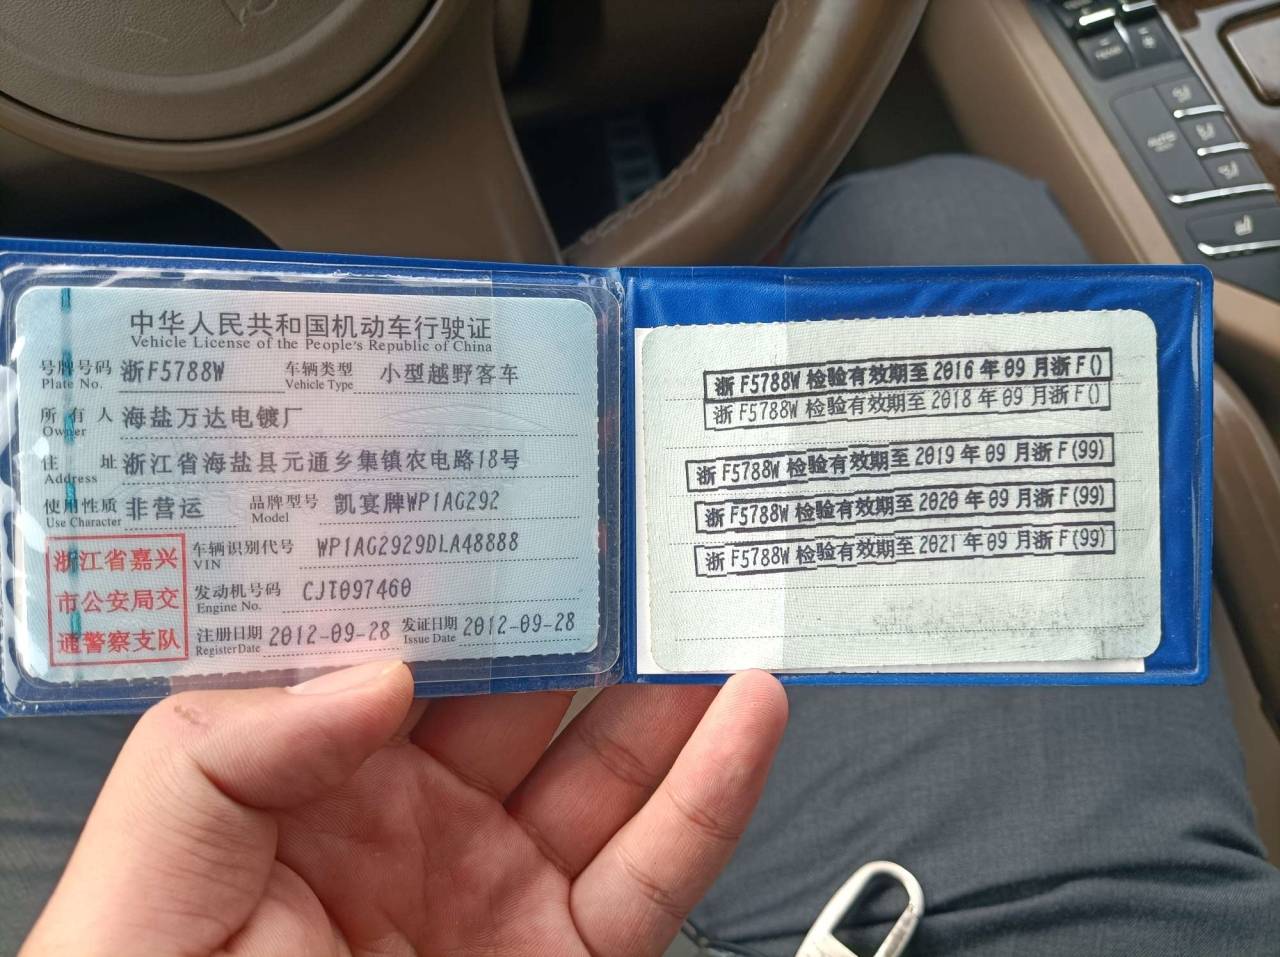 中华人民共和国机动车行驶证
Vehicle License of the People's Republic of China
号牌号码 浙F5788W 车辆类型 小型越野客车
Plate No. Vehicle Type
所有人 海盐万达电镀厂
Owner
住址 浙江省海盐县元通乡集镇农电路18号
Address
使用性质 非营运 品牌型号 凯宴牌WP1AG292
Use Character Model
浙江省嘉兴
市公安局交
通警察支队
车辆识别代号 WP1AG2929DLA48888
VIN
发动机号码 CJT097460
Engine No.
注册日期 2012-09-28 发证日期 2012-09-28
Register Date Issue Date
浙F5788W 检验有效期至2016年09月浙F()
浙F5788W 检验有效期至2018年09月浙F()
浙F5788W 检验有效期至2019年09月浙F(99)
浙F5788W 检验有效期至2020年09月浙F(99)
浙F5788W 检验有效期至2021年09月浙F(99)
AUTO